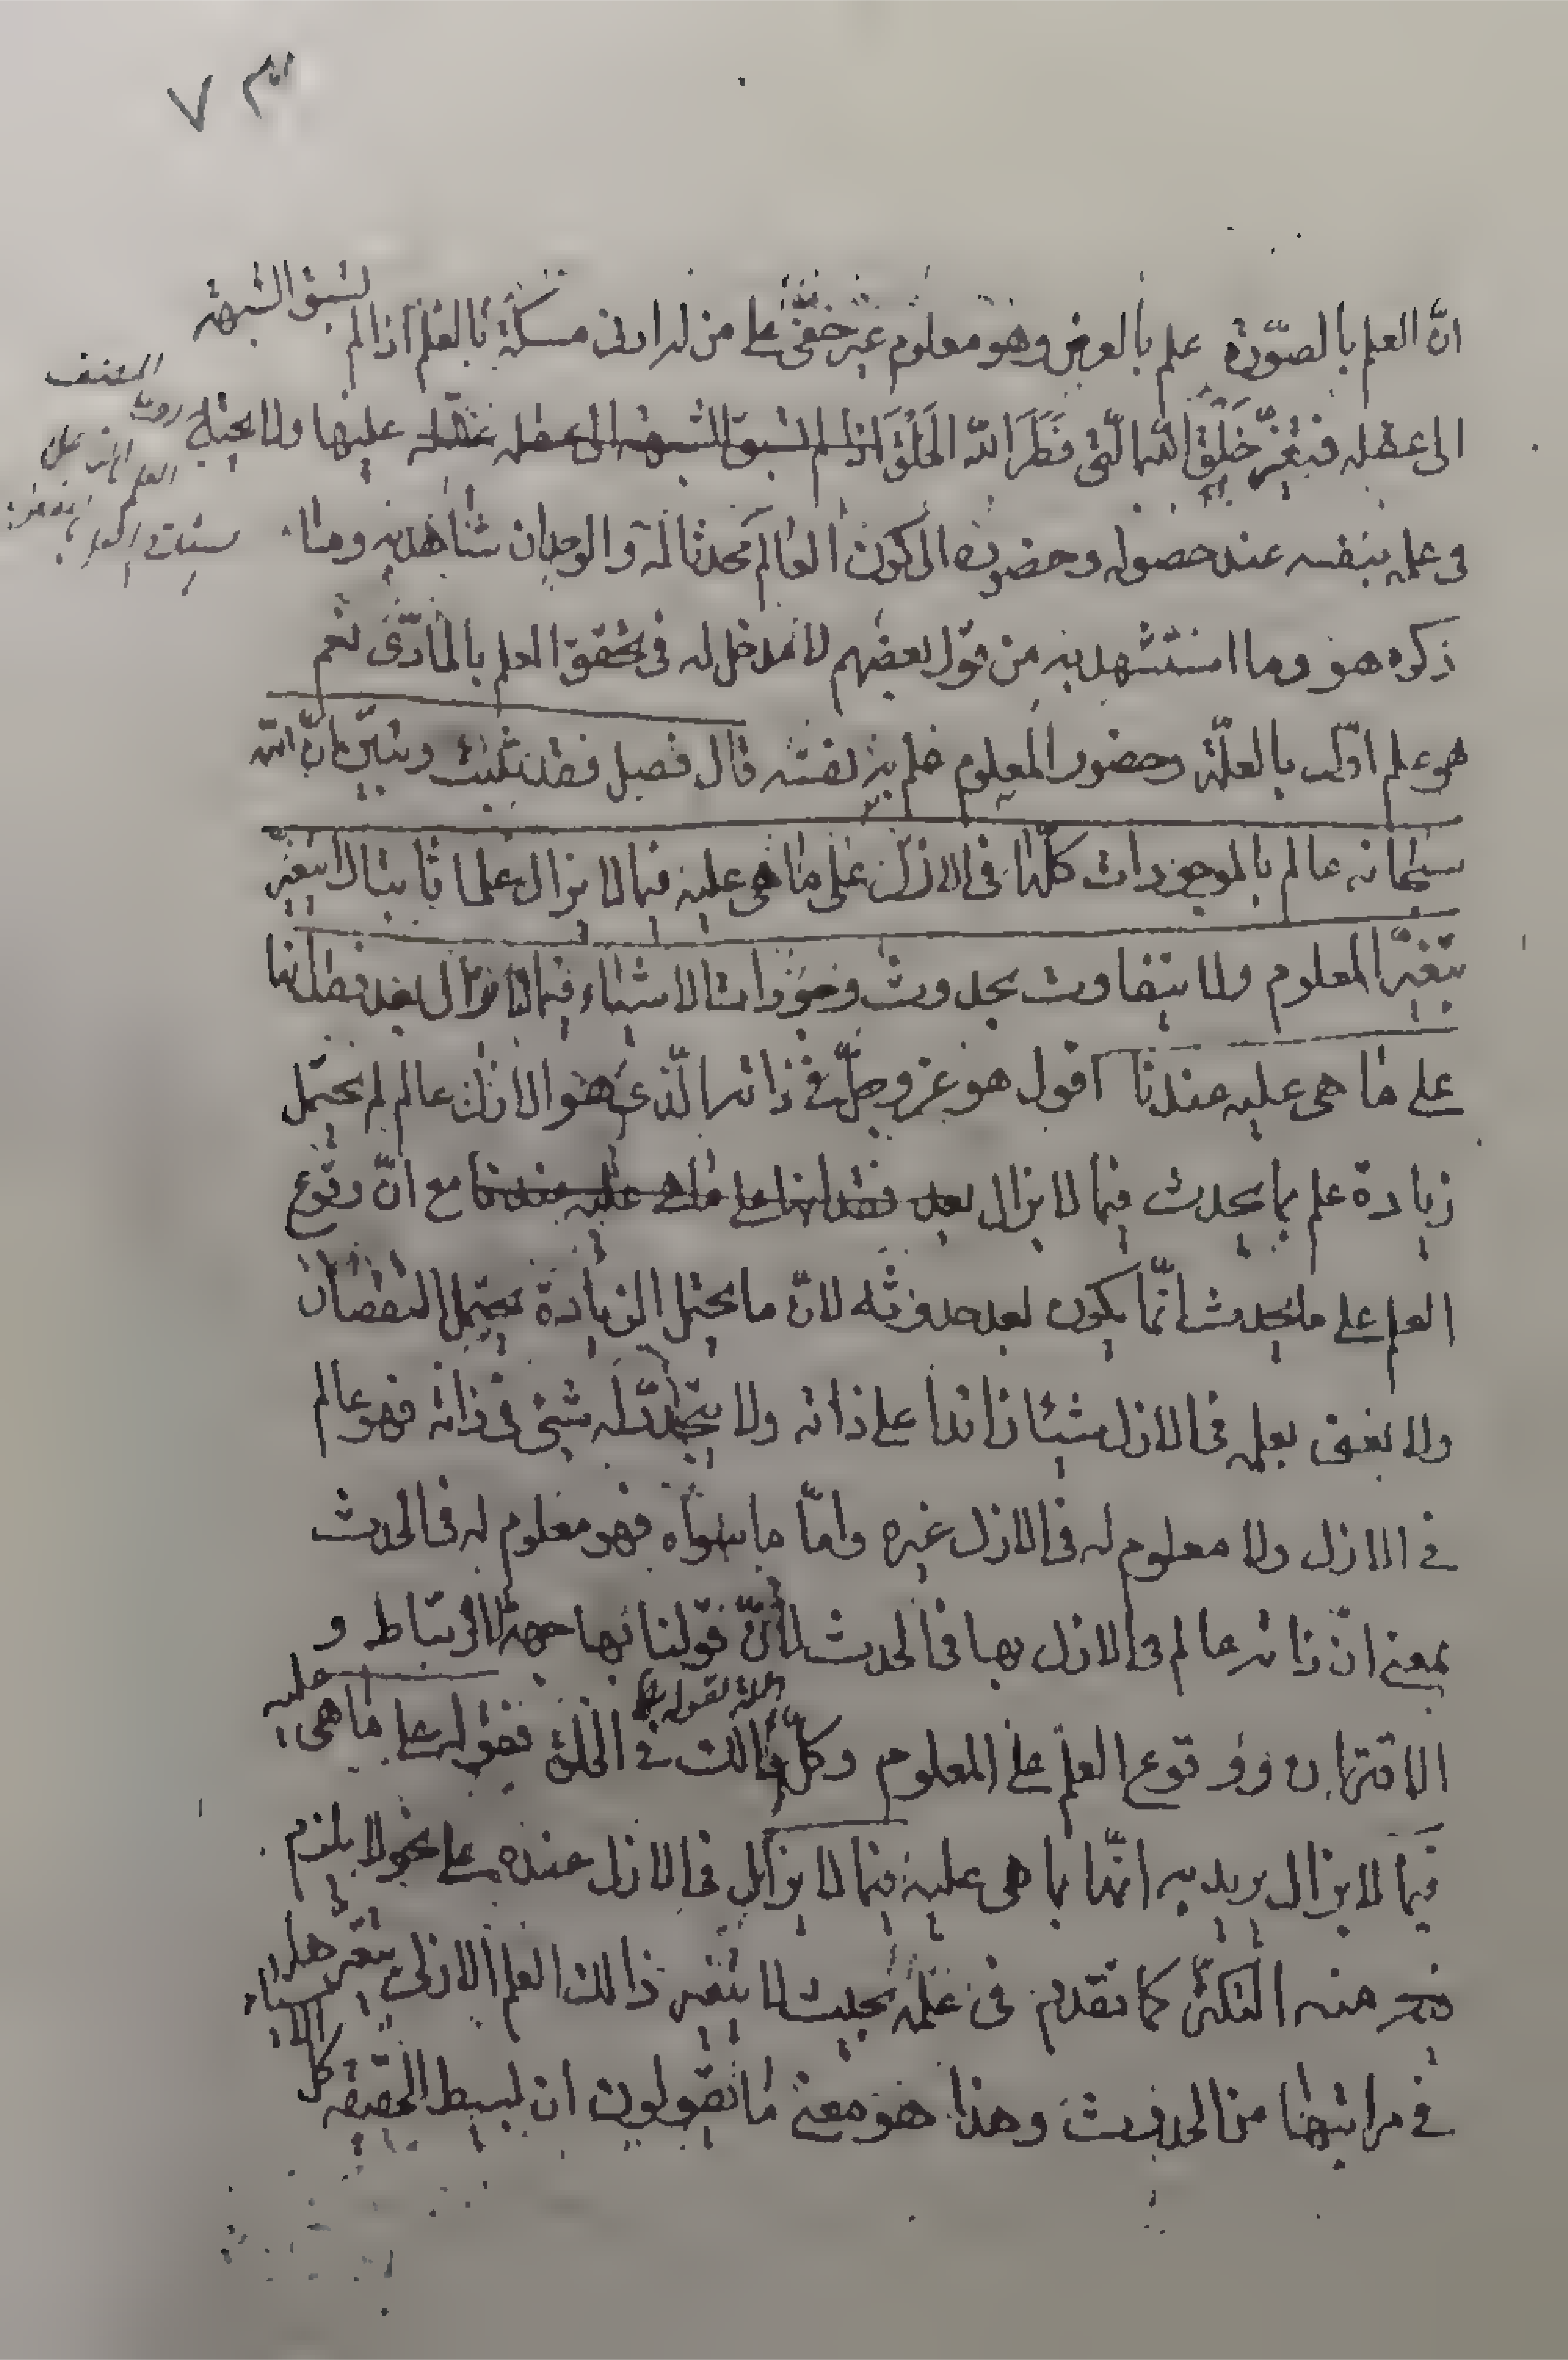 انّ العلم بالصّورة علم بالعرض وهو معلوم غير خفىّ على من له ادنى مسكة بالعلم اذا لم تسبق الشبهة
الى عقله فتغيّر خلق الله الّتى فطر الله الخلق عليها ولا يحتاج
فى علمه بنفسه عند حصوله وحضوره الى كون العالم محدثا له والوجدان شاهد به وما
ذكره هو وما استشهد به من قول بعضهم لا مدخل له فى تحقق العلم بالمادّى نعم
هو علم اوّلى بالعلّة وحضور المعلوم علم به نفسه قال فصل فقد ثبت وتبيّن انّ الله
سبحانه عالم بالموجودات كلّها فى الازل على ما هى عليه فيما لا يزال علما ثابتا لا يتغيّر
بتغيّر المعلوم ولا يتفاوت بحدوث وجودات الاشياء فيما لا يزال بعد فقدانها
على ما هى عليه عندنا اقول هو عز وجلّ فى ذاته الّذى هو الازل عالم لم يحتمل
زيادة علم بما يحدث فيما لا يزال مع انّ وقوع
العلم على ما يحدث انّما يكون بعد حدوثه لانّ ما يحتمل الزيادة يحتمل النقصان
ولا نعنى بعلمه فى الازل شيئا زائدا على ذاته ولا يتجدّد له شيئ فى ذاته فهو عالم
فى الازل ولا معلوم له فى الازل غيره وامّا ما سواه فهو معلوم له فى الحدث
بمعنى انّ ذاته عالم فى الازل بها فى الحدث لأنّ قولنا بها جهة الارتباط و
الاقتران ووقوع العلم على المعلوم وكلّ ذالك فى الخلق فقوله على ما هى عليه
فيما لا يزال يريد به انّها بما هى عليه فيما لا يزال فى الازل عنده على نحو لا يلزم
منه التكثّر كما تقدم فى علمه بحيث لا يتغير ذالك العلم الازلى بتغيّر هذه الاشياء
فى مراتبها من الحدوث وهذا هو معنى ما يقولون ان بسيط الحقيقة كل